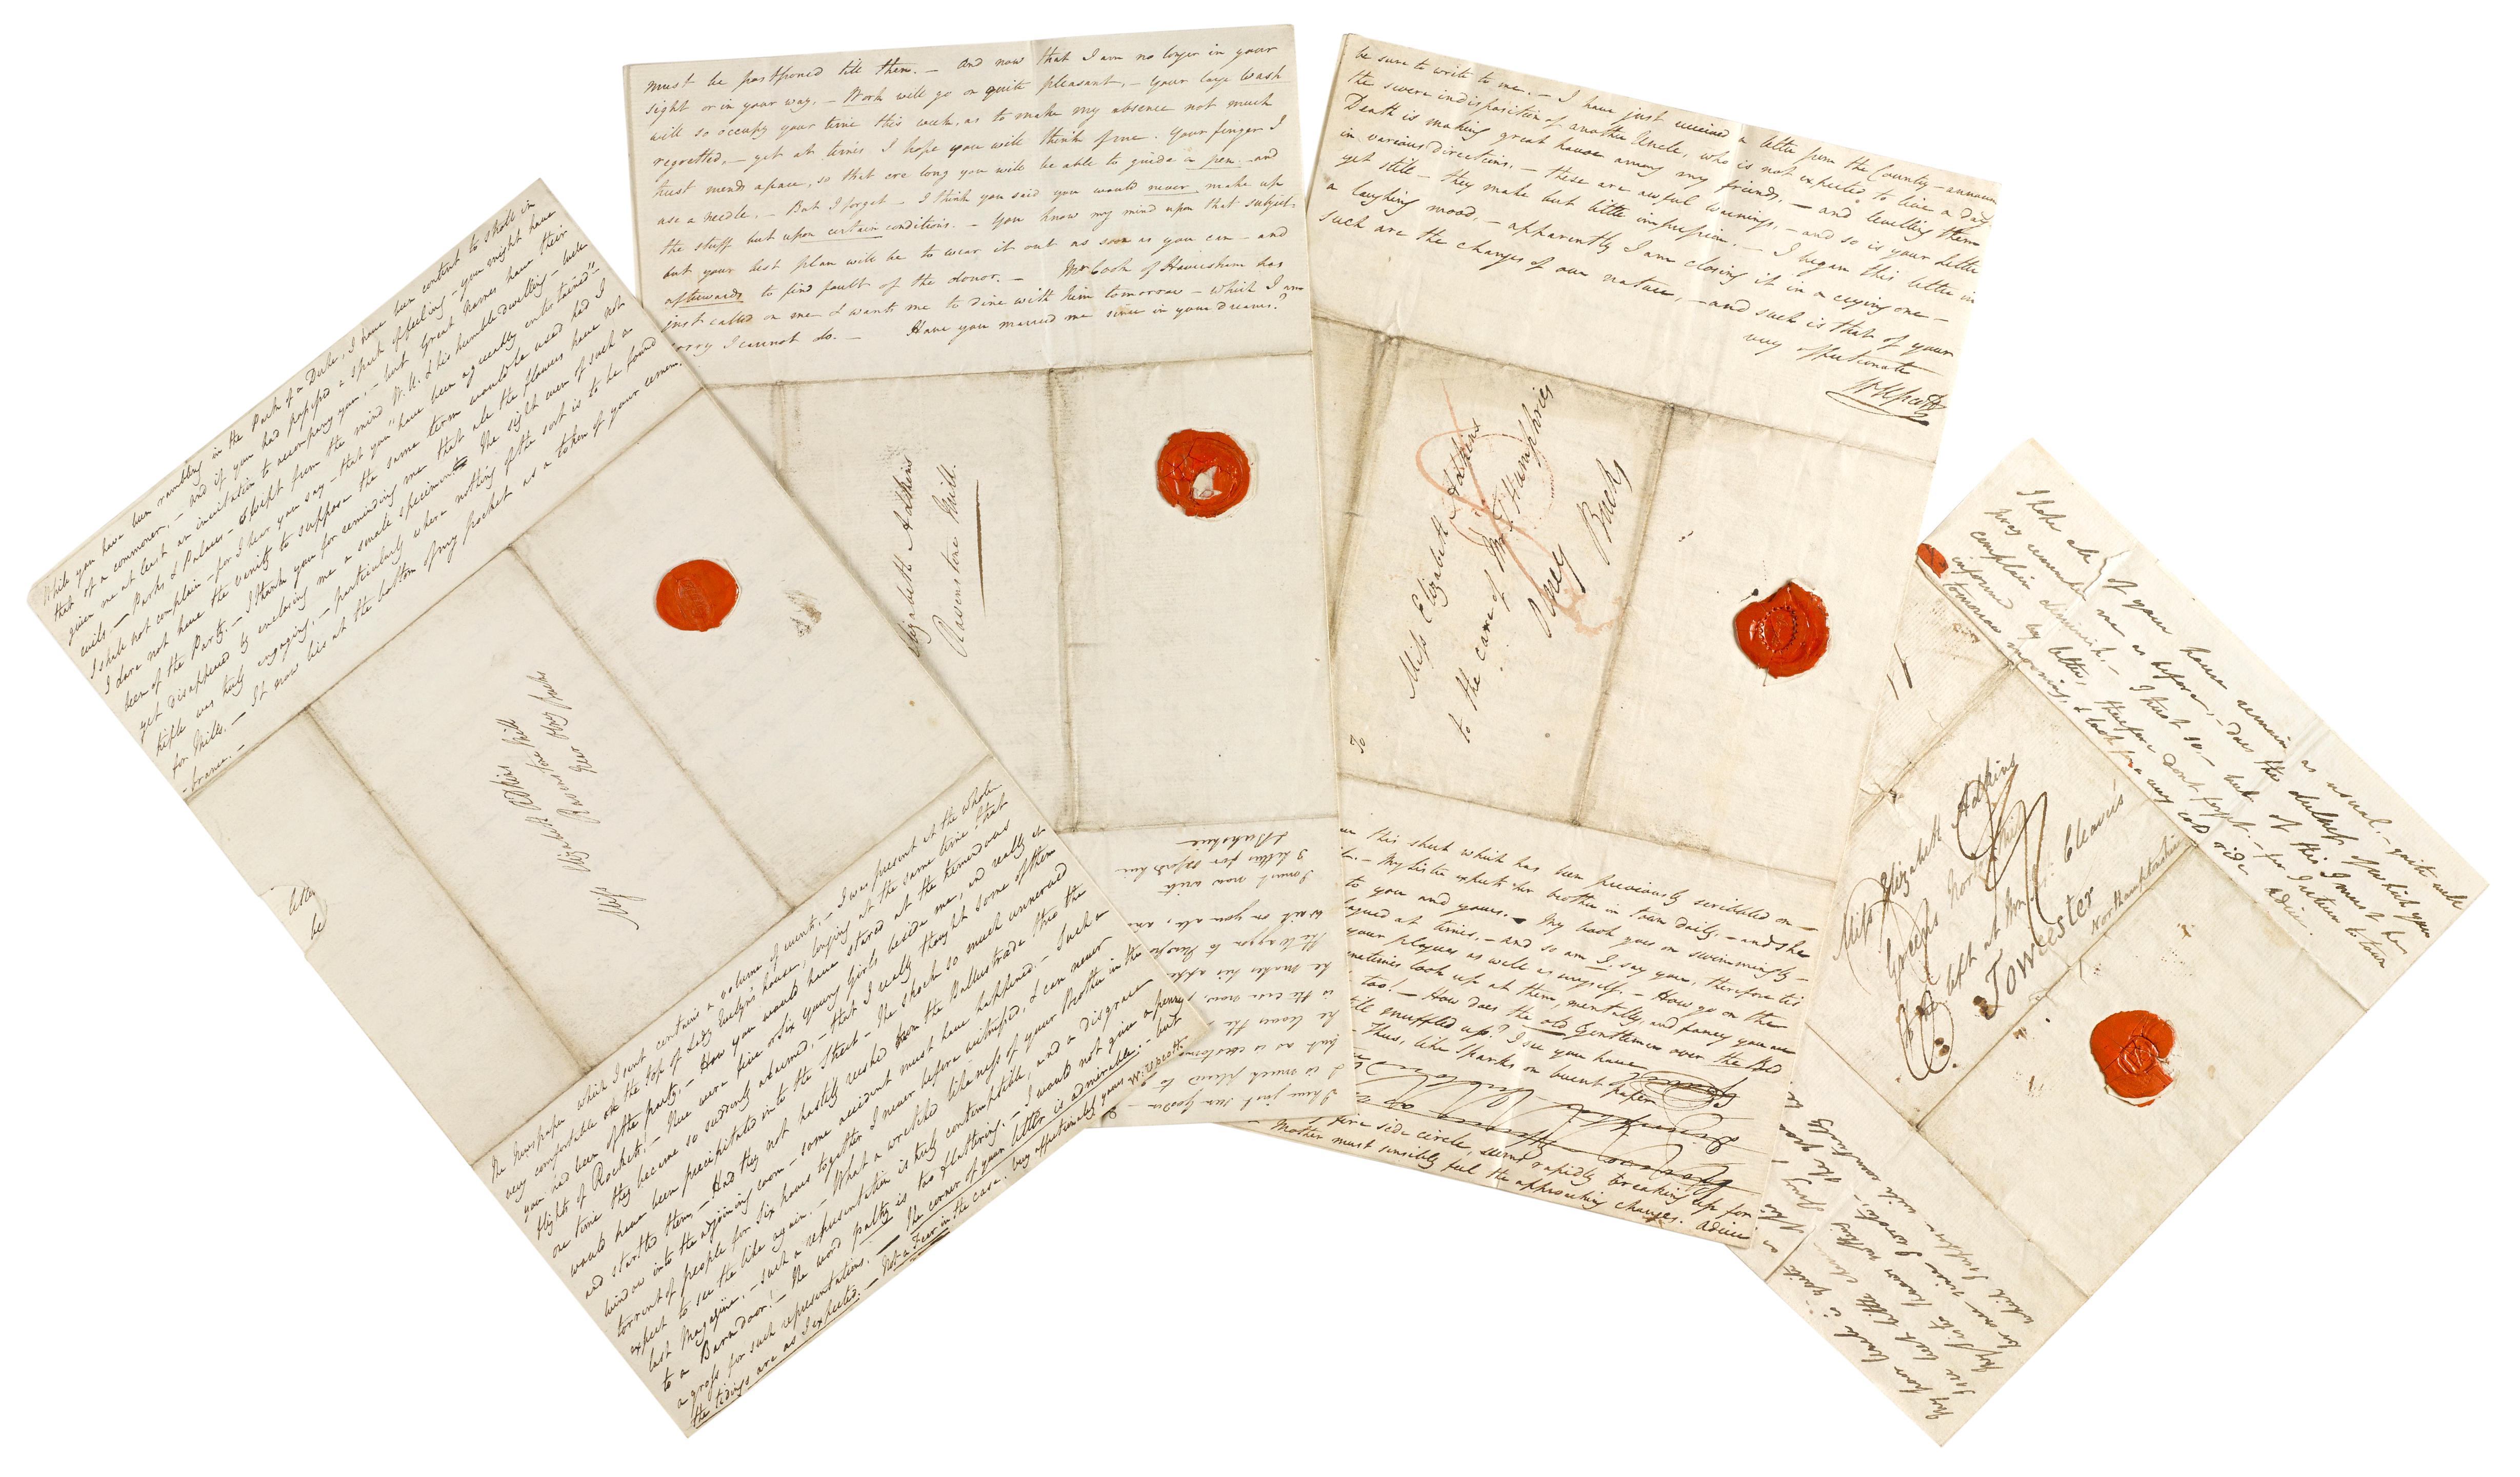 While you have been rambling in the Park of a Duke, I have been content to stroll in
that of a commoner, – and if you had possessed a spark of feeling – you might have
given me at least an invitation to accompany you, – but Great Names have their
evils – Parks & Palaces – swept from the mind W. U. & his humble dwelling – well
I shall not complain – for I hear you say – that you "have been agreeably entertained"–
I dare not have the vanity to suppose the same term would be used had I
been of the Party. – I thank you for reminding me that all the flowers have not
yet disappeared by enclosing me a small specimen – The sight even of such a
trifle was truly engaging, – particularly where nothing of the sort is to be found
for Miles. – It now lies at the bottom of my pocket as a token of your remem
-brance. –
Miss Elizabeth Adkins
Ravenstone Mill
Near Olney Bucks
letter
be
The Newspaper which I sent contains a volume of events, – I was present at the whole
very comfortable on the top of Lady house, longing at the same time that
you had been of the party. – How you would have stared at the tremendous
flights of Rockets! – There were five or six young Girls beside me, and really at
one time they became so suddenly alarmed, – that I really thought some of them
would have been precipitated into the Street – The shock so much unnerved
and startled them, – Had they not hastily rushed from the Ballustrade thro the
window into the adjoining room – some accident must have happened – Such a
torrent of people for six hours together I never before witnessed, & can never
expect to see the like again. – What a wretched likeness of your Brother in the
last Magazine, – such a representation is truly contemptible, and a disgrace
to a Barn door! – The word paltry is too flattering. – I would not give a penny
a gross for such representations. – The corner of your letter is admirable; – but
the tidings are as I expected. – Not a Few in the case. very affectionately yours W: Upcott.
must be postponed till then. – And now that I am no longer in your
sight or in your way, – Work will go on quite pleasant, – Your large Wash
will so occupy your time this week, as to make my absence not much
regretted, – yet at times I hope you will think of me. Your finger I
trust mends apace, so that ere long you will be able to guide a pen – and
use a needle. – But I forget – I think you said you would never make up
the stuff but upon certain conditions. – You know my mind upon that subject
but your best plan will be to wear it out as soon as you can – and
afterwards to find fault of the donor. – Mr Cook of Haversham has
just called on me & wants me to dine with him tomorrow – which I am
sorry I cannot do. – Have you married me since in your dreams?
Elizabeth Adkins
Ravenstone Mill.
I have just seen
& is much pleased to
but as is
he leaves the
is the
he makes his
the Waggon to
wait on you also, and
I must now write
3 letters for Oxfordshire
& Berkshire
be sure to write to me. – I have just received a letter from the Country – announ
the severe indisposition of another Uncle, who is not expected to live a day.
Death is making great havoc among my friends, – and levelling them
in various directions. – these are awful warnings, – and so is your letter
yet still – they make but little impression. – I began this letter in
a laughing mood, – apparently I am closing it in a crying one –
such are the changes of our nature, – and such is that of your
very affectionate
Wm Upcott
To
Miss Elizabeth Adkins
to the care of Mr T Humphries
Olney
Bucks
this sheet which has been previously scribbled on –
– My sister expects her brother in town daily. – and she
to you and yours. – My book goes on swimmingly –
at times. – and so am I, say you, therefore tis
your plagues as well as myself. – How go on the
sometimes look up at them, mentally, and fancy you are
too! – How does the old Gentleman over the Bed
still snuffled up? I see you have
– Thus, like sparks on burnt paper
fire side circle, seems rapidly breaking up for
Mother must sensibly feel the approaching changes. adieu
I hope all of your house remain as usual, – quite well
pray remember me as before, – does the dulness of which you
complain diminish. – I trust so. – but of this I must be
informed by letter, therefore dont forget. – for I return to town
tomorrow morning, & look for a very cold ride adieu.
Miss Elizabeth Adkins
Greens Norton Mill
to be left at Mr Cleave's
Towcester
Northamptonshire